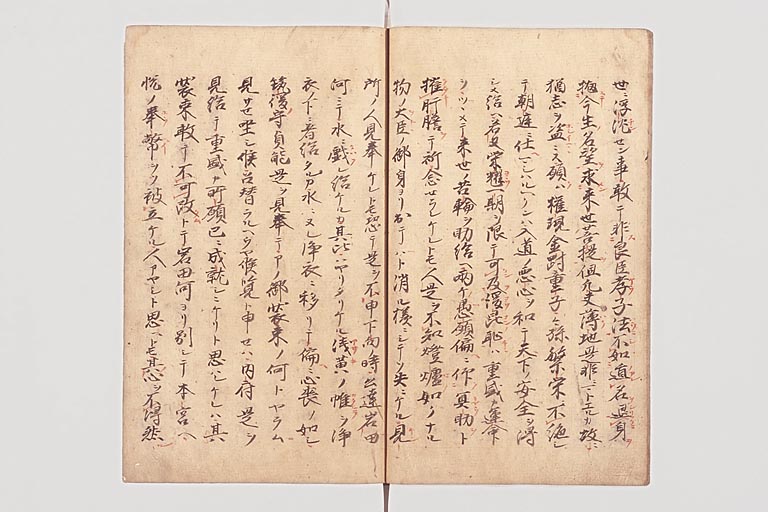 世ニ浮沈セン事敢テ非良臣孝子法不如遁名退身
抛今生名望求来世菩提但凡夫薄地是非ニ
猶志ヲ恣ニス願ハ権現金剛童子子孫繁栄不絶シ
テ朝廷ニ仕ヘシハル入道ノ悪心ヲ和テ天下ノ安全ヲ得
シメ給ヘ若又栄耀一期ヲ限テ可及後昆恥ハ重盛カ運命
ヲツヽメテ来世ノ苦輪ヲ助給ヘ両ケ愚願偏ニ仰冥助ト
摧肝膽テ祈念セラレケレトモ人是ヲ不知燈爐如ノナル
物ノ大臣ノ御身ヨリ出テハト消ル様ニシテソ失ニケル見
所ノ人見奉ケレトモ恐テ是ヲ不申下向時公達岩田
何ニテ水ニ戯レ給ケルカ其比ニヤリケル浅黄ノ帷ヲ浄
衣ノ下ニ着給タルカ水ニヌレ浄衣ニ移リテ偏ニ心喪ノ如シ
筑後守貞能是ヲ見奉テアノ御装束ノ何トヤラム
見サセ坐シ候召替ラルヘクヤ候覧ト申セハ内府是ヲ
見給テ重盛カ所願已ニ成就シニケリト思ハレケレハ其
装束敢テ不可改トテ岩田何ヨリ別シテ本宮ヘ
悦ノ奉幣ヲソ被立ケル人アヤシト思ヘトモ其心ヲ不得然